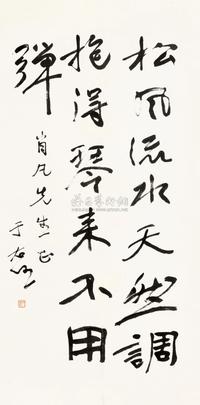 松风流水天然調
抱得琴来不用
彈
肖凡先生正
于右任